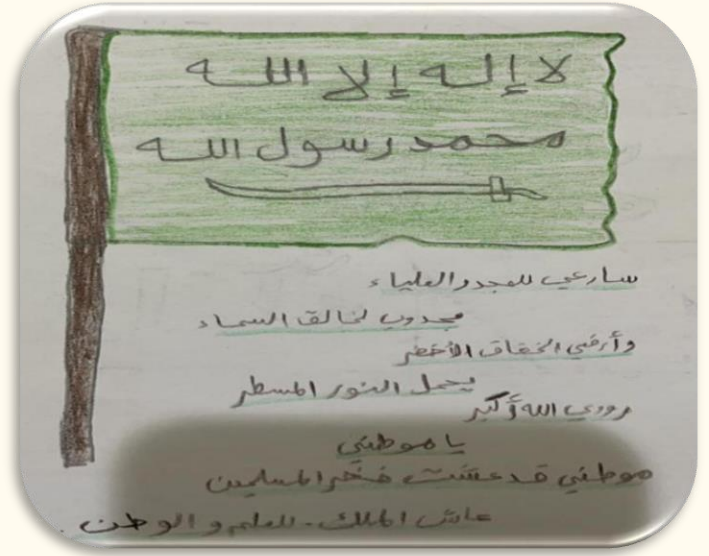 لا إله إلا الله
محمد رسول الله
سارعي للمجد والعلياء
مجدي لخالق السماء
وأرفعي الخفاق الأخضر
يحمل النور المسطر
رددي الله أكبر
يا موطني
موطني قد عشت فخر المسلمين
عاش الملك . للعلم والوطن .